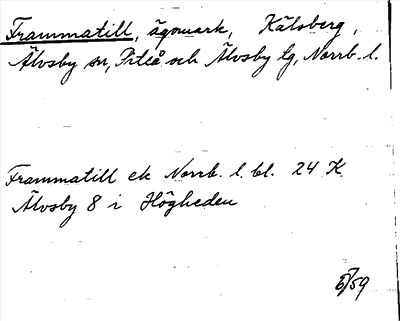 Frammatill, ägomark, Kälsberg,
Älvsby sn, Piteå och Älvsby tg, Norrb. l.
Frammatill ek Norrb. l. bl. 24 K
Älvsby 8 i Högheden